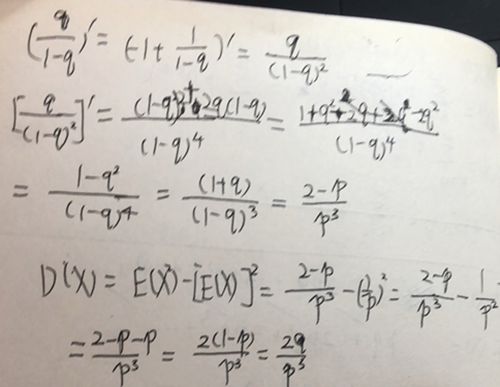 (q/(1-q))' = (-1+ 1/(1-q))' = q/(1-q)²
[q/(1-q)²]' = ((1-q)²+2q(1-q))/(1-q)⁴ = (1+q²-2q+2q-2q²)/(1-q)⁴
= (1-q²)/(1-q)⁴ = (1+q)/(1-q)³ = (2-p)/p³
D(X) = E(X²)-[E(X)]² = (2-p)/p³ - (1/p)² = (2-p)/p³ - 1/p²
= (2-p-p)/p³ = 2(1-p)/p³ = 2q/p³